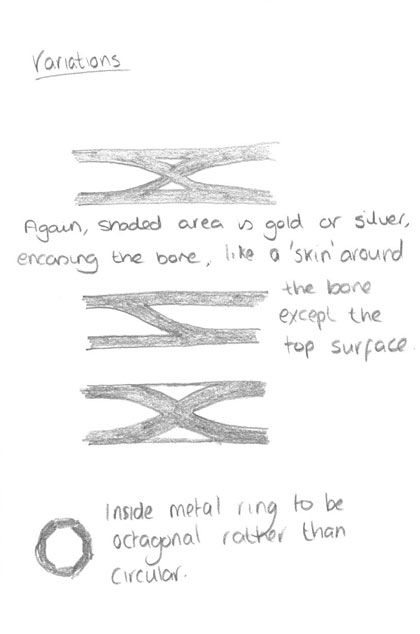 Variations
Again, shaded area is gold or silver,
encasing the bone, like a 'skin' around
the bone
except the
top surface.
Inside metal ring to be
octagonal rather than
circular.